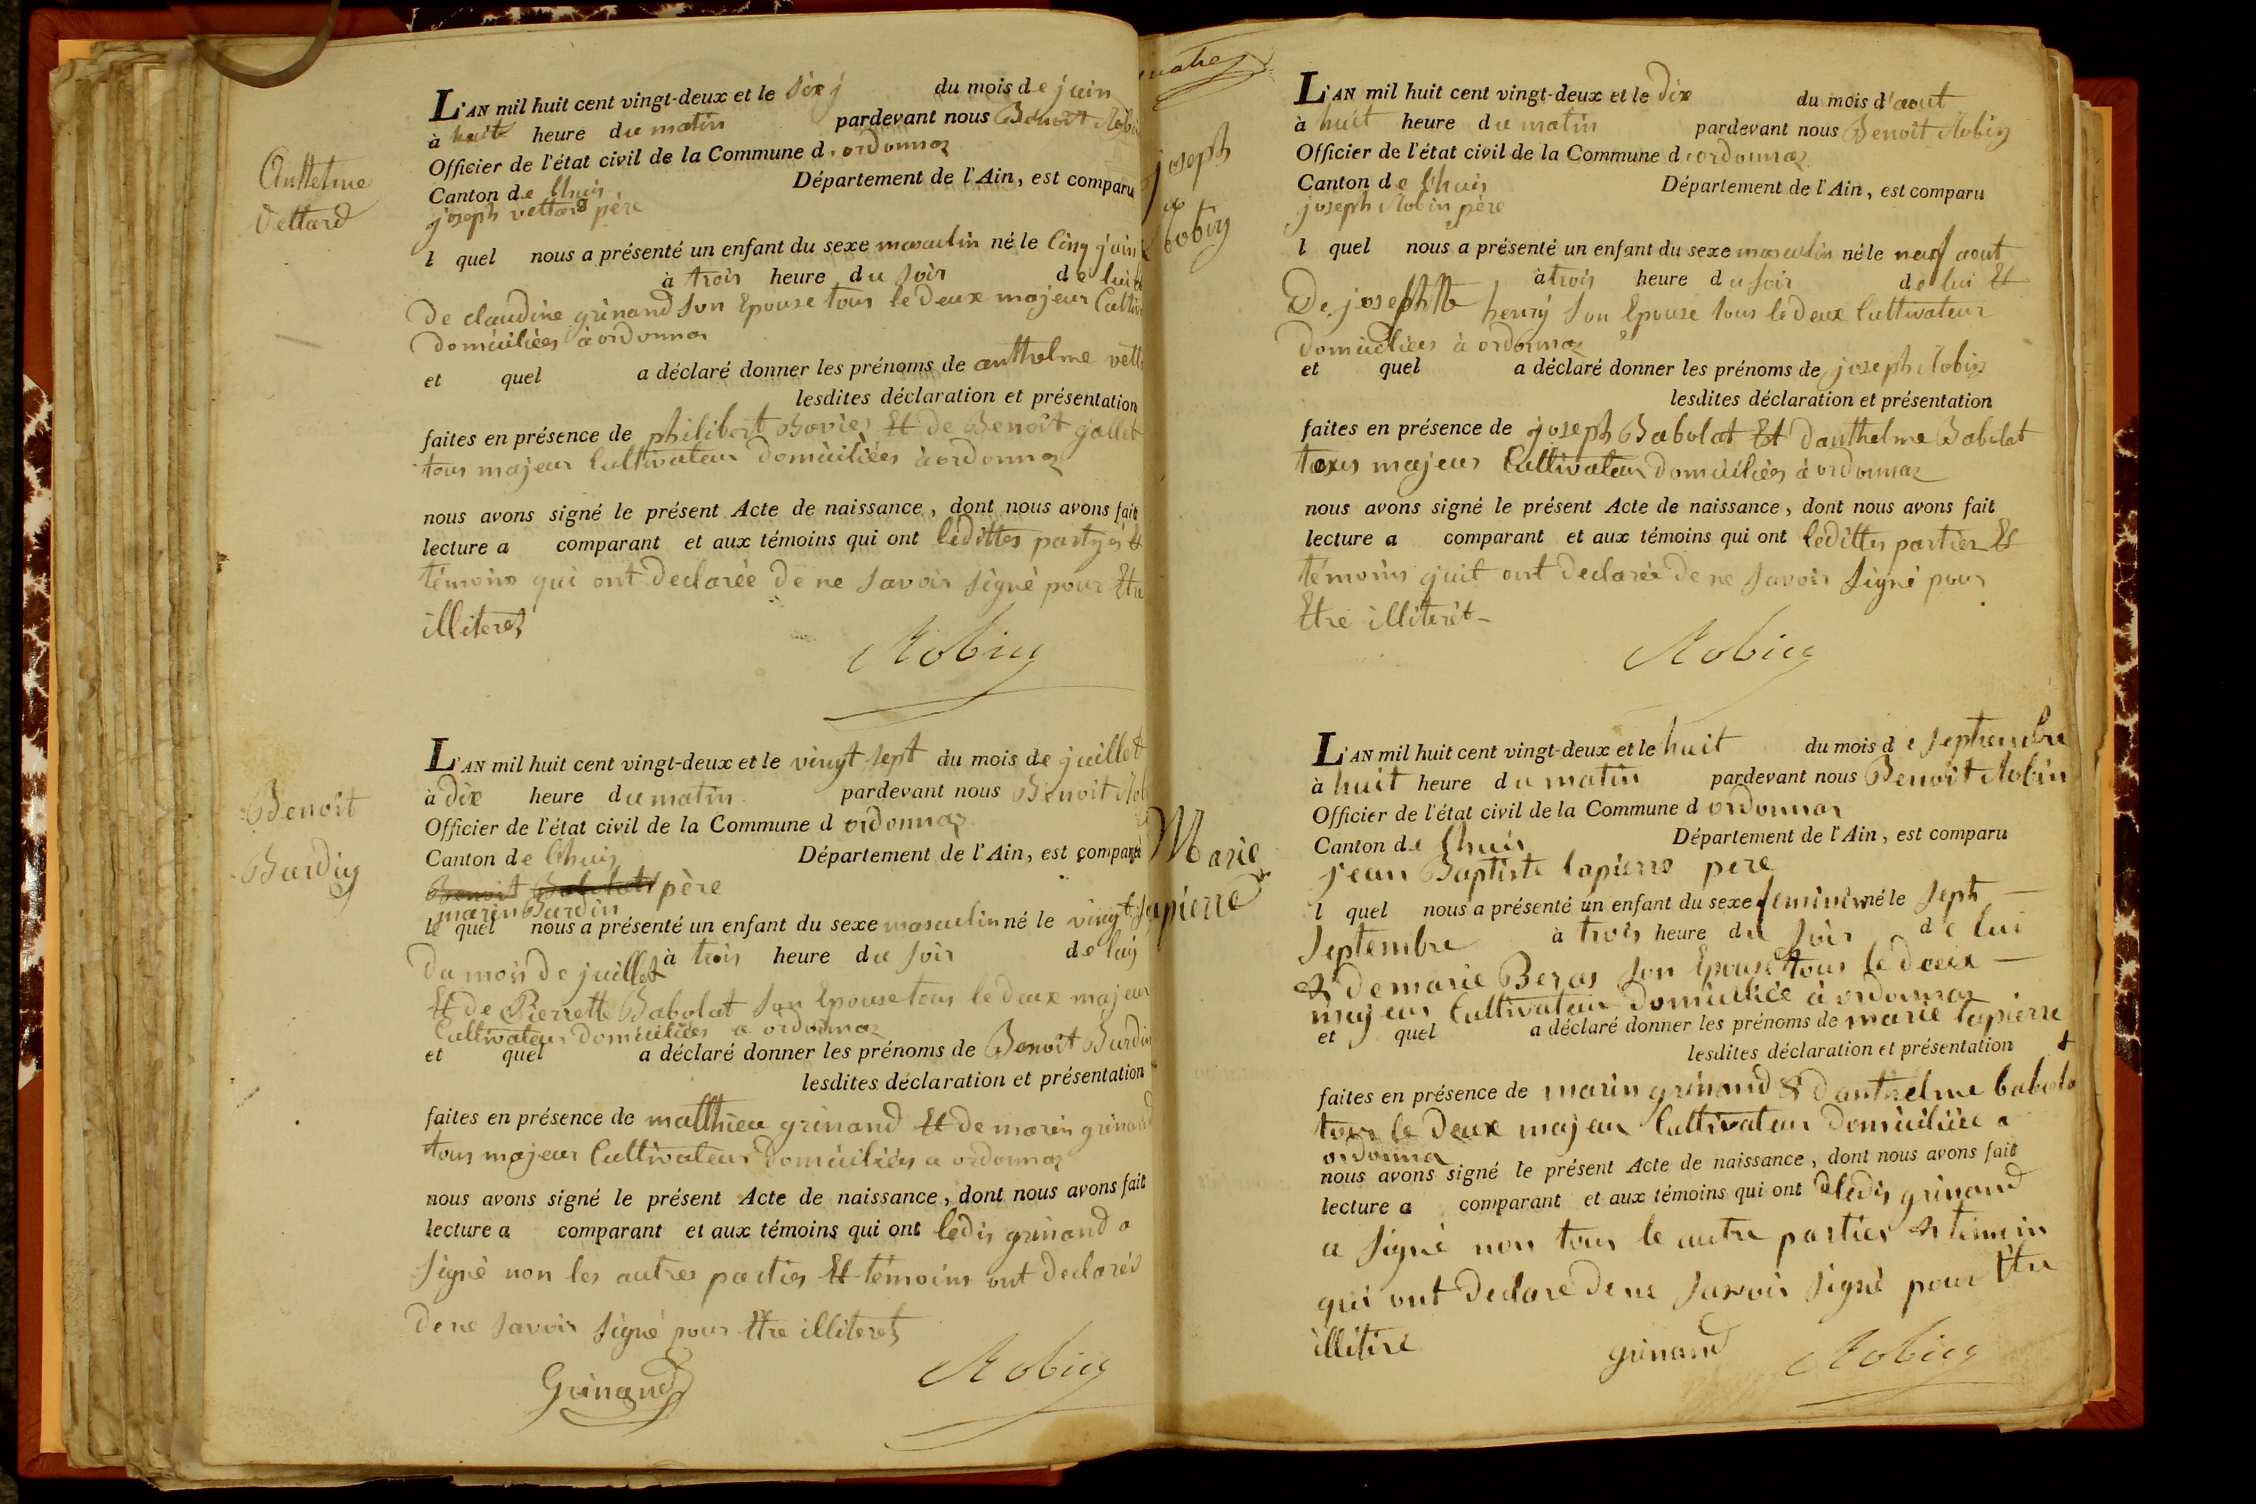 Anthelme
Vettard
L'AN mil huit cent vingt-deux et le Six du mois de juin
à huit heure du matin pardevant nous Benoit Robin
Officier de l'état civil de la Commune d'ordonnaz
Canton de Lhuis Département de l'Ain, est comparu
joseph vettard père
l quel nous a présenté un enfant du sexe masculin né le Cinq juin
à trois heure du soir de lui
De claudine grinand Son Epouse tous le deux majeur Cultiv
domiciliées à ordonnaz
et quel a déclaré donner les prénoms de anthelme vett
lesdites déclaration et présentation
faites en présence de philibert Bovier Et de Benoit gallet
tous majeur Cultivateur domiciliées à ordonnaz
nous avons signé le présent Acte de naissance, dont nous avons fait
lecture a comparant et aux témoins qui ont ledittes partyes Et
témoins qui ont declarée de ne Savoir Signé pour Etre
illiteret
Robin
Benoit
Burdin
L'AN mil huit cent vingt-deux et le vingt-sept du mois de juillet
à dix heure du matin pardevant nous Benoit Rob
Officier de l'état civil de la Commune d ordonnaz
Canton de Lhuis Département de l'Ain, est comparu
Benoit Babolat père
marin Burdin
le quel nous a présenté un enfant du sexe masculin né le vingt
du mois de juillet à trois heure du soir de luy
Et de Pierrette Babolat Son Epouse tous le deux majeur
Cultivateur domiciliées a ordonnaz
et quel a déclaré donner les prénoms de Benoit Burdin
lesdites déclaration et présentation
faites en présence de matthieu grinand Et de marin grinand
tous majeur Cultivateur domiciliées a ordonnaz
nous avons signé le présent Acte de naissance, dont nous avons fait
lecture a comparant et aux témoins qui ont ledis grinand a
Signé non les autres parties Et témoins ont declarés
de ne Savoir Signé pour Etre illiteret
Grinand Robin
joseph
Robin
L'AN mil huit cent vingt-deux et le dix du mois d'aout
à huit heure du matin pardevant nous Benoit Robin
Officier de l'état civil de la Commune d'ordonnaz
Canton de Lhuis Département de l'Ain, est comparu
joseph Robin père
l quel nous a présenté un enfant du sexe masculin né le neuf aout
à trois heure du soir de lui Et
De josephtte henry Son Epouse tous le deux Cultivateur
domiciliées à ordonnaz
et quel a déclaré donner les prénoms de joseph Robin
lesdites déclaration et présentation
faites en présence de joseph Babolat Et d'anthelme Babolat
tous majeur Cultivateur domiciliées à ordonnaz
nous avons signé le présent Acte de naissance, dont nous avons fait
lecture a comparant et aux témoins qui ont ledittes parties Et
témoins quit ont declarée de ne Savoir Signé pour
Etre illiterét
Robin
Marie
Lapierre
L'AN mil huit cent vingt-deux et le huit du mois de Septembre
à huit heure du matin pardevant nous Benoit Robin
Officier de l'état civil de la Commune d ordonnaz
Canton de Lhuis Département de l'Ain, est comparu
jean Baptiste lapierre pere
l quel nous a présenté un enfant du sexe feminin né le Sept
Septembre à trois heure du Soir de lui
& de marie Beras Son Epouse tous le deux
majeur Cultivateur domiciliée à ordonnaz
et quel a déclaré donner les prénoms de marie lapierre
lesdites déclaration et présentation
faites en présence de marin grinand & d'anthelme babola
tous le deux majeur Cultivateur domiciliée a
ordonna
nous avons signé le présent Acte de naissance, dont nous avons fait
lecture a comparant et aux témoins qui ont ledis grinand
a Signé non tous le autre parties & témoin
qui ont declaré de ne Savoir Signé pour Etre
illitire
grinand Robin